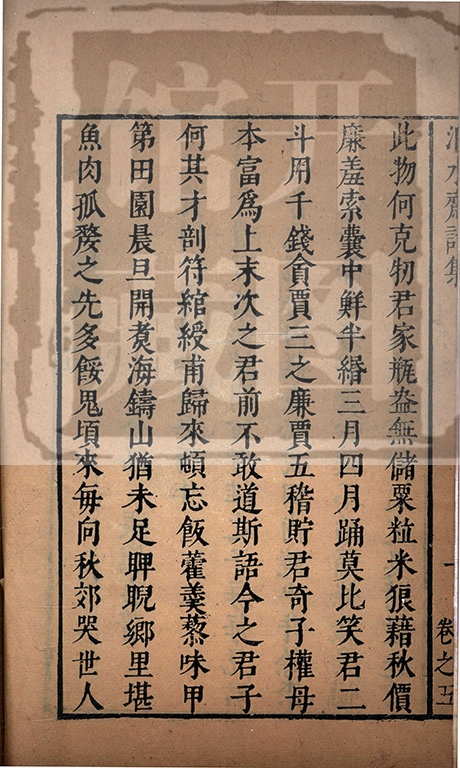 水齋詩集 卷之五 一
此物何克牣君家瓶盎無儲粟粒米狼藉秋價
廉羞索囊中鮮半緡三月四月踊莫比笑君二
斗用千錢貪賈三之廉賈五稸貯君奇子權母
本富爲上末次之君前不敢道斯語今之君子
何其才剖符綰綬甫歸來頓忘飯藿羹藜味甲
第田園晨旦開煑海鑄山猶未足睥睨鄉里堪
魚肉孤嫠之先多餒鬼頃來每向秋郊哭世人